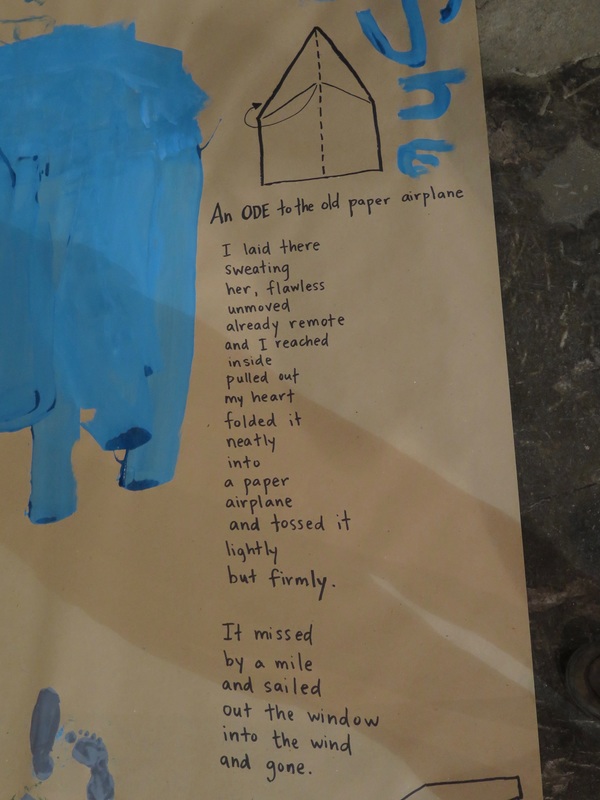 An ODE to the old paper airplane
I laid there
sweating
her, flawless
unmoved
already remote
and I reached
inside
pulled out
my heart
folded it
neatly
into
a paper
airplane
and tossed it
lightly
but firmly.
It missed
by a mile
and sailed
out the window
into the wind
and gone.